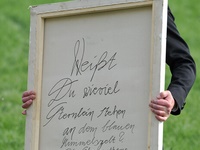 Weißt
Du wieviel
Sternlein stehen
an dem blauen
Himmelszelt?